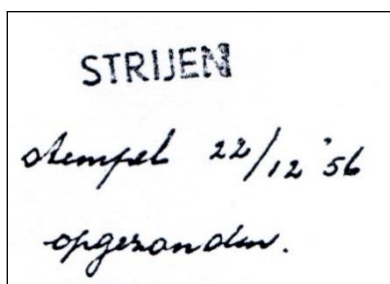 STRIJEN
stempel 22/12 '56
opgezonden.